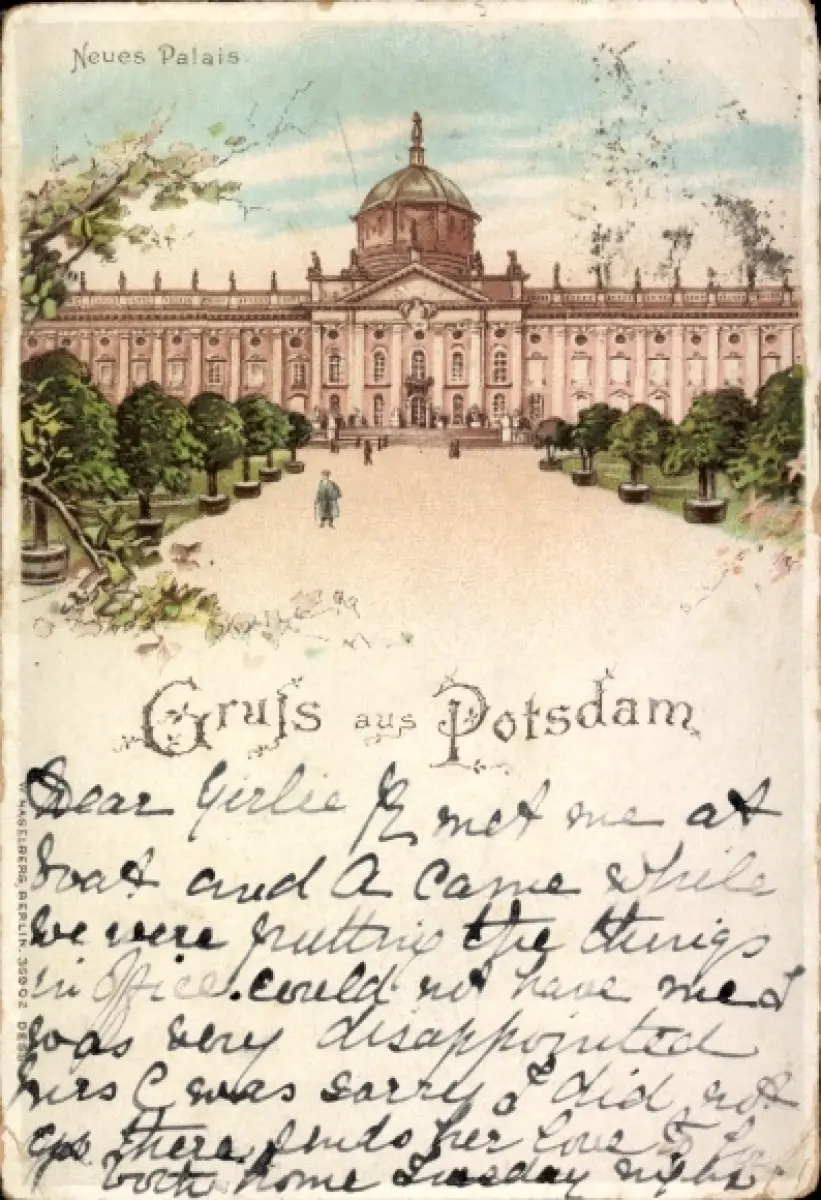 Neues Palais.
Gruss aus Potsdam
Dear Girlie met me at
boat and A came while
we were putting the things
in office. could not have me I
was very disappointed
Mrs C was sorry I did not
go there, sends her love to
both home Tuesday night
W. HAGELBERG, BERLIN. 36902